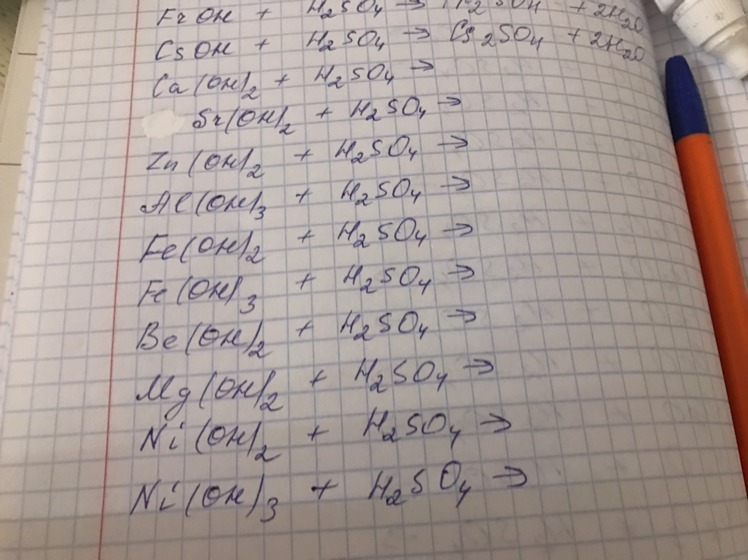 FrOH + H₂SO₄ → Fr₂SO4 + 2H₂O
CsOH + H₂SO₄ → Cs₂SO4 + 2H₂O
Ca(OH)₂ + H₂SO₄ →
Sr(OH)₂ + H₂SO₄ →
Zn(OH)₂ + H₂SO₄ →
Al(OH)₃ + H₂SO₄ →
Fe(OH)₂ + H₂SO₄ →
Fe(OH)₃ + H₂SO₄ →
Be(OH)₂ + H₂SO₄ →
Mg(OH)₂ + H₂SO₄ →
Ni(OH)₂ + H₂SO₄ →
Ni(OH)₃ + H₂SO₄ →